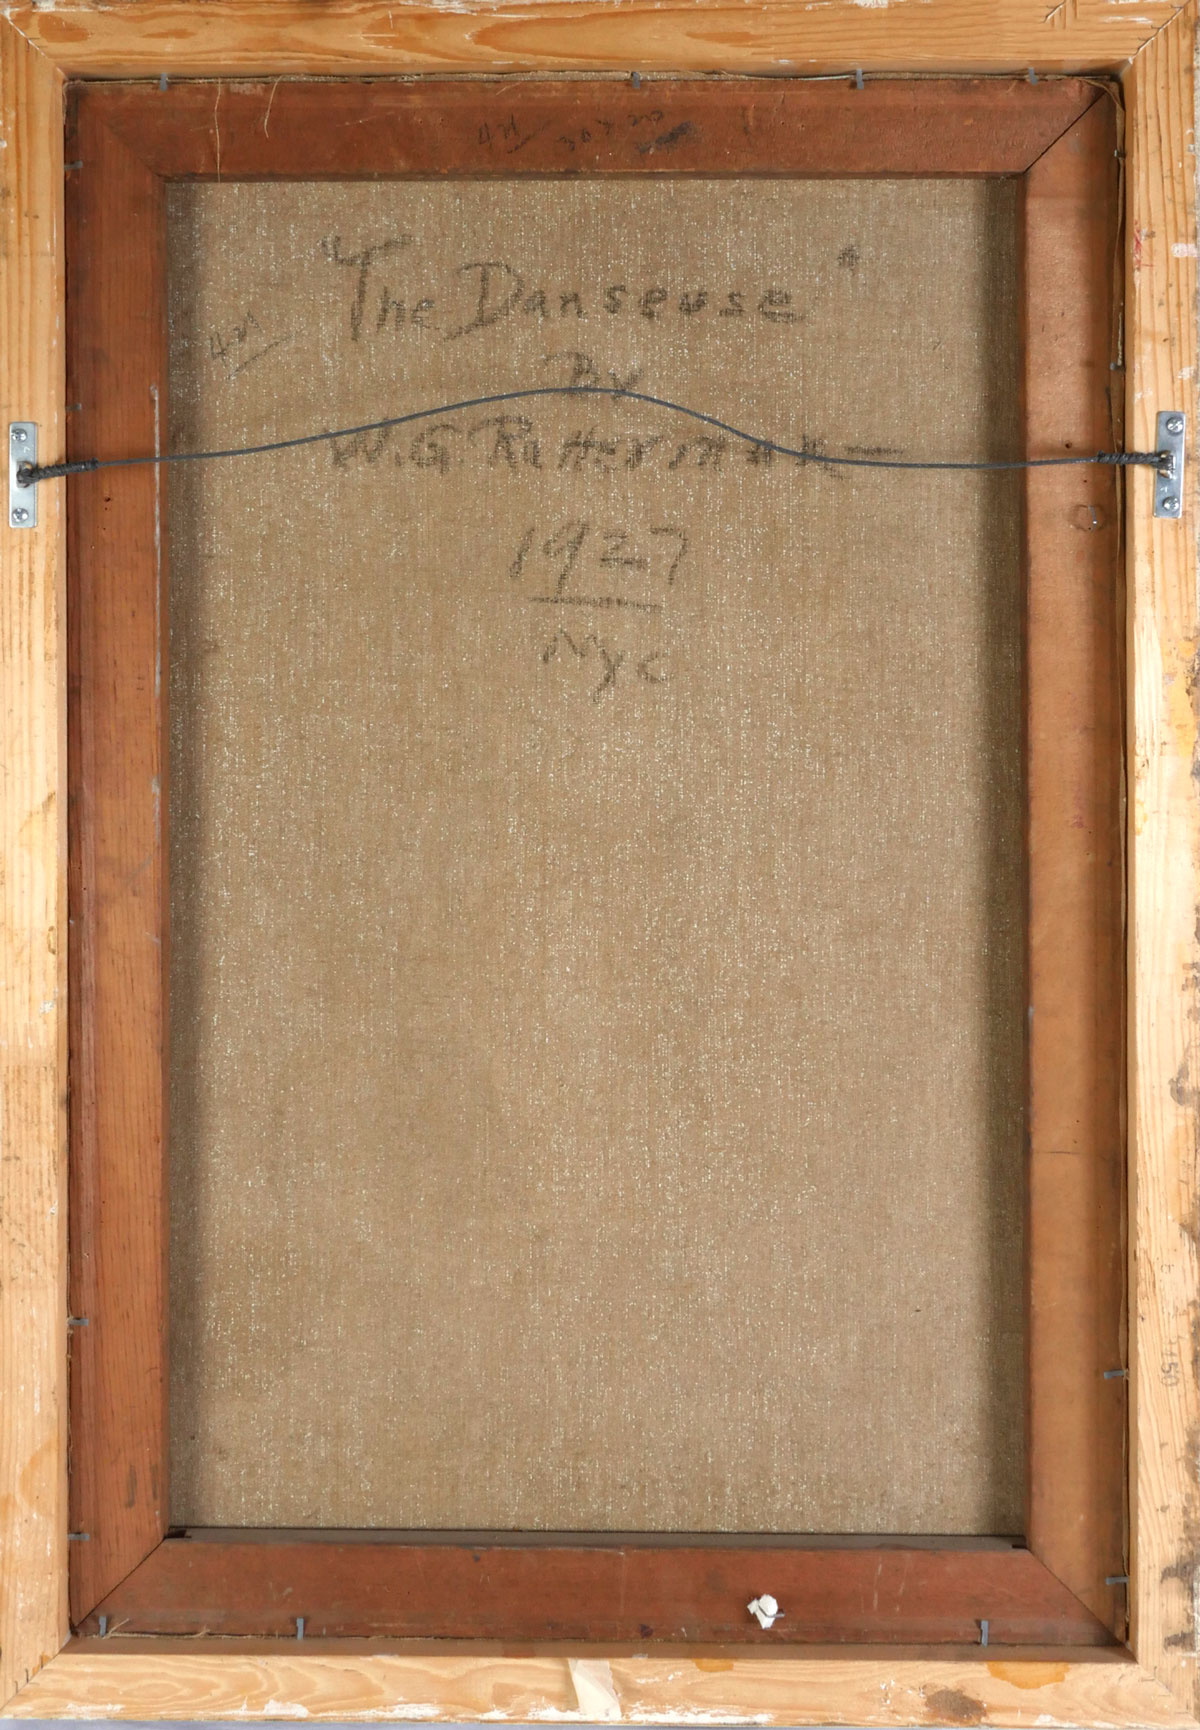 "The Danseuse"
By
W.G. Ratterman
1927
NYC